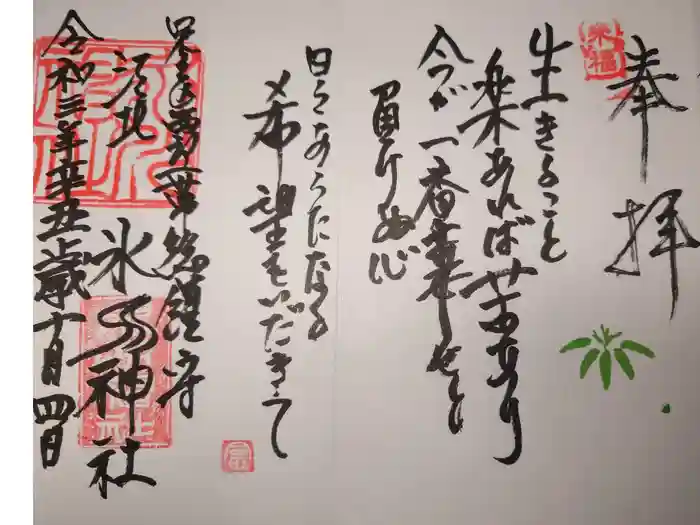 奉拝
生きること
楽あれば苦あり
今が一番幸せと
負けぬ心
日々あらたなる
希望をいだきて
総鎮守
氷川神社
令和三年辛丑歳十月四日